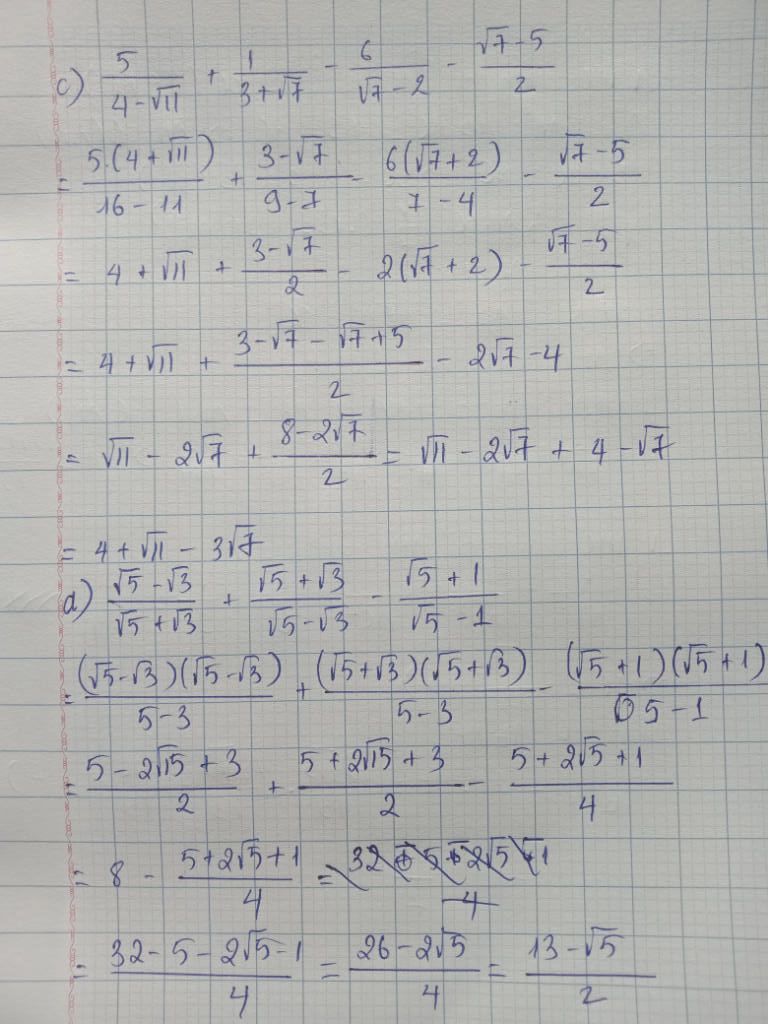 c) 5/(4-√11) + 1/(3+√7) - 6/(√7-2) - (√7-5)/2
= 5.(4+√11)/(16-11) + (3-√7)/(9-7) - 6(√7+2)/(7-4) - (√7-5)/2
= 4+√11 + (3-√7)/2 - 2(√7+2) - (√7-5)/2
= 4+√11 + (3-√7-√7+5)/2 - 2√7-4
= √11 - 2√7 + (8-2√7)/2 = √11 - 2√7 + 4-√7
= 4+√11 - 3√7
d) (√5-√3)/(√5+√3) + (√5+√3)/(√5-√3) - (√5+1)/(√5-1)
= (√5-√3)(√5-√3)/(5-3) + (√5+√3)(√5+√3)/(5-3) - (√5+1)(√5+1)/(5-1)
= (5-2√15+3)/2 + (5+2√15+3)/2 - (5+2√5+1)/4
= 8 - (5+2√5+1)/4 =
= (32-5-2√5-1)/4 = (26-2√5)/4 = (13-√5)/2